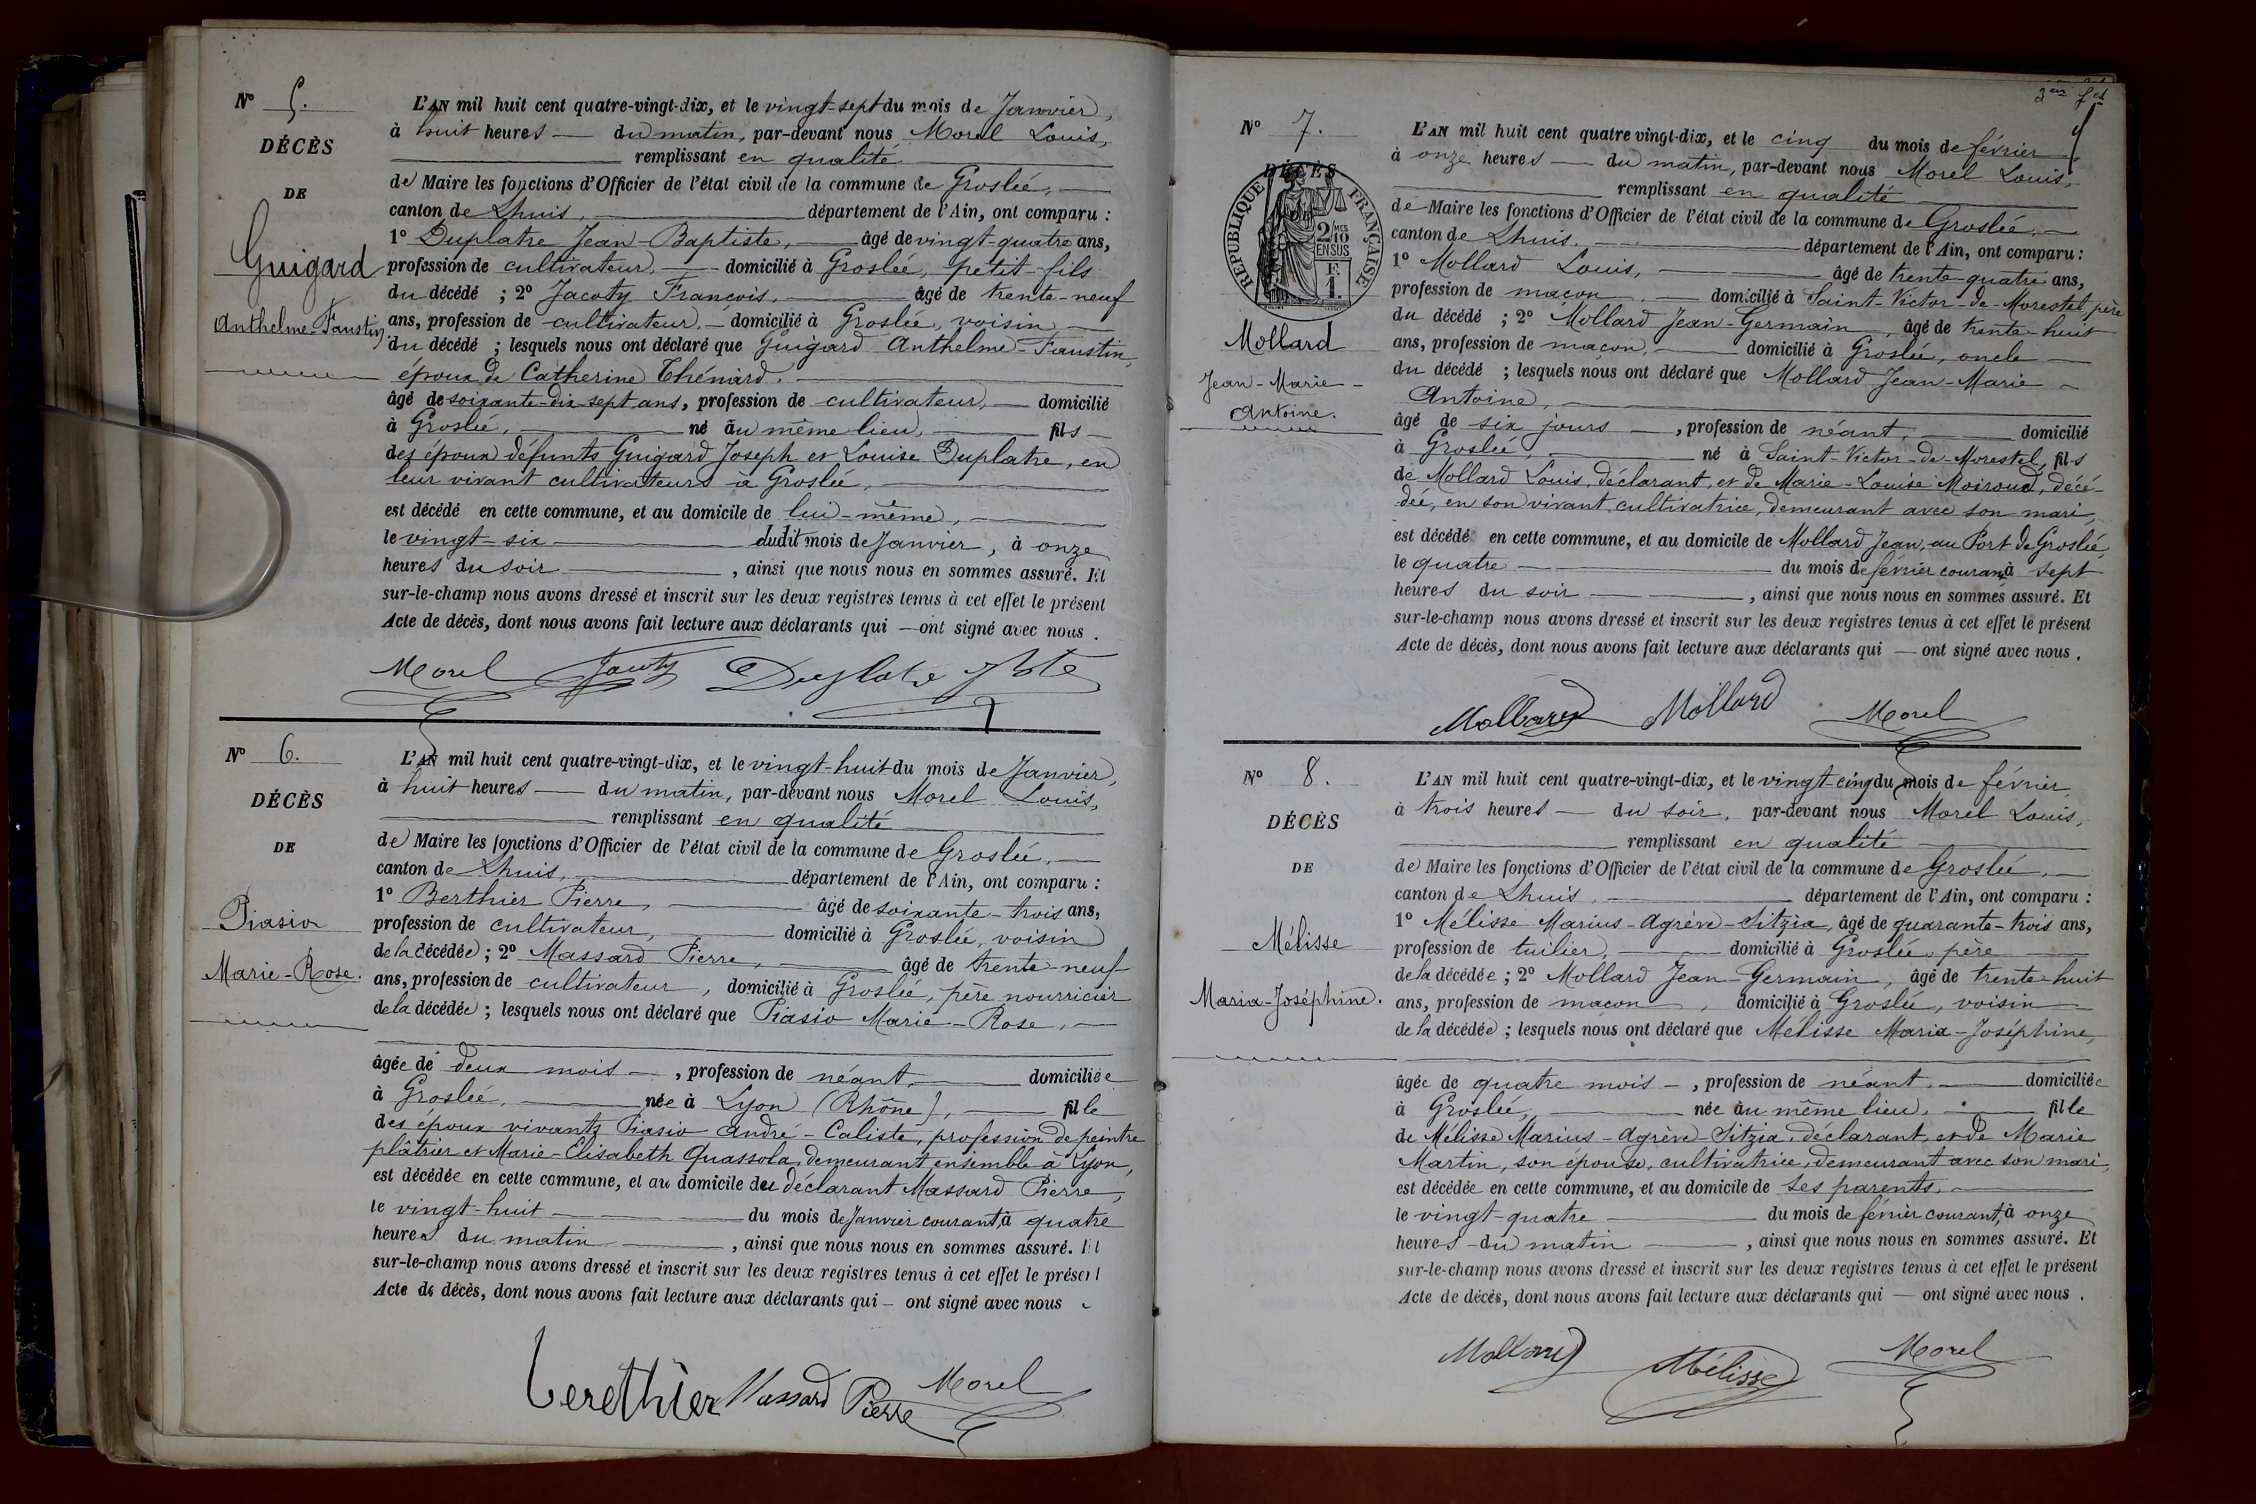 N° 5.
DÉCÈS
DE
Guigard
Anthelme-Faustin.
L'AN mil huit cent quatre-vingt-dix, et le vingt-sept du mois de Janvier,
à huit heures — du matin, par-devant nous Morel Louis,
remplissant en qualité
de Maire les fonctions d'Officier de l'état civil de la commune de Groslée,
canton de Lhuis, département de l'Ain, ont comparu :
1° Duplatre Jean-Baptiste, âgé de vingt-quatre ans,
profession de cultivateur, domicilié à Groslée, petit-fils
du décédé ; 2° Jacoty François, âgé de trente-neuf
ans, profession de cultivateur, domicilié à Groslée, voisin
du décédé ; lesquels nous ont déclaré que Guigard Anthelme-Faustin,
époux de Catherine Thénard.
âgé de soixante-dix-sept ans, profession de cultivateur, domicilié
à Groslée, né au même lieu, fils
des époux défunts Guigard Joseph et Louise Duplatre, en
leur vivant cultivateurs à Groslée,
est décédé en cette commune, et au domicile de lui-même,
le vingt-six dudit mois de Janvier, à onze
heures du soir, ainsi que nous nous en sommes assuré. Et
sur-le-champ nous avons dressé et inscrit sur les deux registres tenus à cet effet le présent
Acte de décès, dont nous avons fait lecture aux déclarants qui — ont signé avec nous.
Morel Jacoty Duplatre Jbte
N° 6.
DÉCÈS
DE
Piasio
Marie-Rose.
L'AN mil huit cent quatre-vingt-dix, et le vingt-huit du mois de Janvier,
à huit heures — du matin, par-devant nous Morel Louis,
remplissant en qualité
de Maire les fonctions d'Officier de l'état civil de la commune de Groslée,
canton de Lhuis, département de l'Ain, ont comparu :
1° Berthier Pierre, âgé de soixante-trois ans,
profession de cultivateur, domicilié à Groslée, voisin
de la décédée ; 2° Massard Pierre, âgé de trente-neuf
ans, profession de cultivateur, domicilié à Groslée, père nourricier
de la décédée ; lesquels nous ont déclaré que Piasio Marie-Rose,
âgée de deux mois —, profession de néant, domiciliée
à Groslée, née à Lyon (Rhône), fille
des époux vivants Piasio André-Caliste, profession de peintre
plâtrier et Marie-Elisabeth Quassola, demeurant ensemble à Lyon,
est décédée en cette commune, et au domicile du déclarant Massard Pierre,
le vingt-huit du mois de Janvier courant, à quatre
heures du matin, ainsi que nous nous en sommes assuré. Et
sur-le-champ nous avons dressé et inscrit sur les deux registres tenus à cet effet le présent
Acte de décès, dont nous avons fait lecture aux déclarants qui — ont signé avec nous
berethier Massard Pierre Morel
N° 7.
DÉCÈS
DE
RÉPUBLIQUE FRANÇAISE
2/10 MES
EN SUS
F.
1.
Mollard
Jean-Marie-
Antoine.
L'AN mil huit cent quatre vingt-dix, et le cinq du mois de février
à onze heures — du matin, par-devant nous Morel Louis,
remplissant en qualité
de Maire les fonctions d'Officier de l'état civil de la commune de Groslée,
canton de Lhuis, département de l'Ain, ont comparu :
1° Mollard Louis, âgé de trente-quatre ans,
profession de maçon, domicilié à Saint-Victor-de-Morestel, père
du décédé ; 2° Mollard Jean-Germain, âgé de trente-huit
ans, profession de maçon, domicilié à Groslée, oncle
du décédé ; lesquels nous ont déclaré que Mollard Jean-Marie
Antoine,
âgé de six jours —, profession de néant, domicilié
à Groslée, né à Saint-Victor-de-Morestel, fils
de Mollard Louis, déclarant, et de Marie-Louise Moiroud, décé-
dée, en son vivant cultivatrice, demeurant avec son mari,
est décédé en cette commune, et au domicile de Mollard Jean, au Port de Groslée,
le quatre du mois de février courant, à sept
heures du soir, ainsi que nous nous en sommes assuré. Et
sur-le-champ nous avons dressé et inscrit sur les deux registres tenus à cet effet le présent
Acte de décès, dont nous avons fait lecture aux déclarants qui — ont signé avec nous.
Mollard Mollard Morel
N° 8.
DÉCÈS
DE
Mélisse
Maria-Joséphine.
L'AN mil huit cent quatre-vingt-dix, et le vingt-cinq du mois de février,
à trois heures — du soir, par-devant nous Morel Louis,
remplissant en qualité
de Maire les fonctions d'Officier de l'état civil de la commune de Groslée,
canton de Lhuis, département de l'Ain, ont comparu :
1° Mélisse Marius-Agrève-Sitzia, âgé de quarante-trois ans,
profession de tuilier, domicilié à Groslée, père
de la décédée ; 2° Mollard Jean-Germain, âgé de trente-huit
ans, profession de maçon, domicilié à Groslée, voisin
de la décédée ; lesquels nous ont déclaré que Mélisse Maria-Joséphine,
âgée de quatre mois —, profession de néant, domiciliée
à Groslée, née au même lieu, fille
de Mélisse Marius-Agrève-Sitzia, déclarant, et de Marie
Martin, son épouse, cultivatrice, demeurant avec son mari,
est décédée en cette commune, et au domicile de ses parents,
le vingt-quatre du mois de février courant, à onze
heures du matin, ainsi que nous nous en sommes assuré. Et
sur-le-champ nous avons dressé et inscrit sur les deux registres tenus à cet effet le présent
Acte de décès, dont nous avons fait lecture aux déclarants qui — ont signé avec nous.
Mollard Mélisse Morel